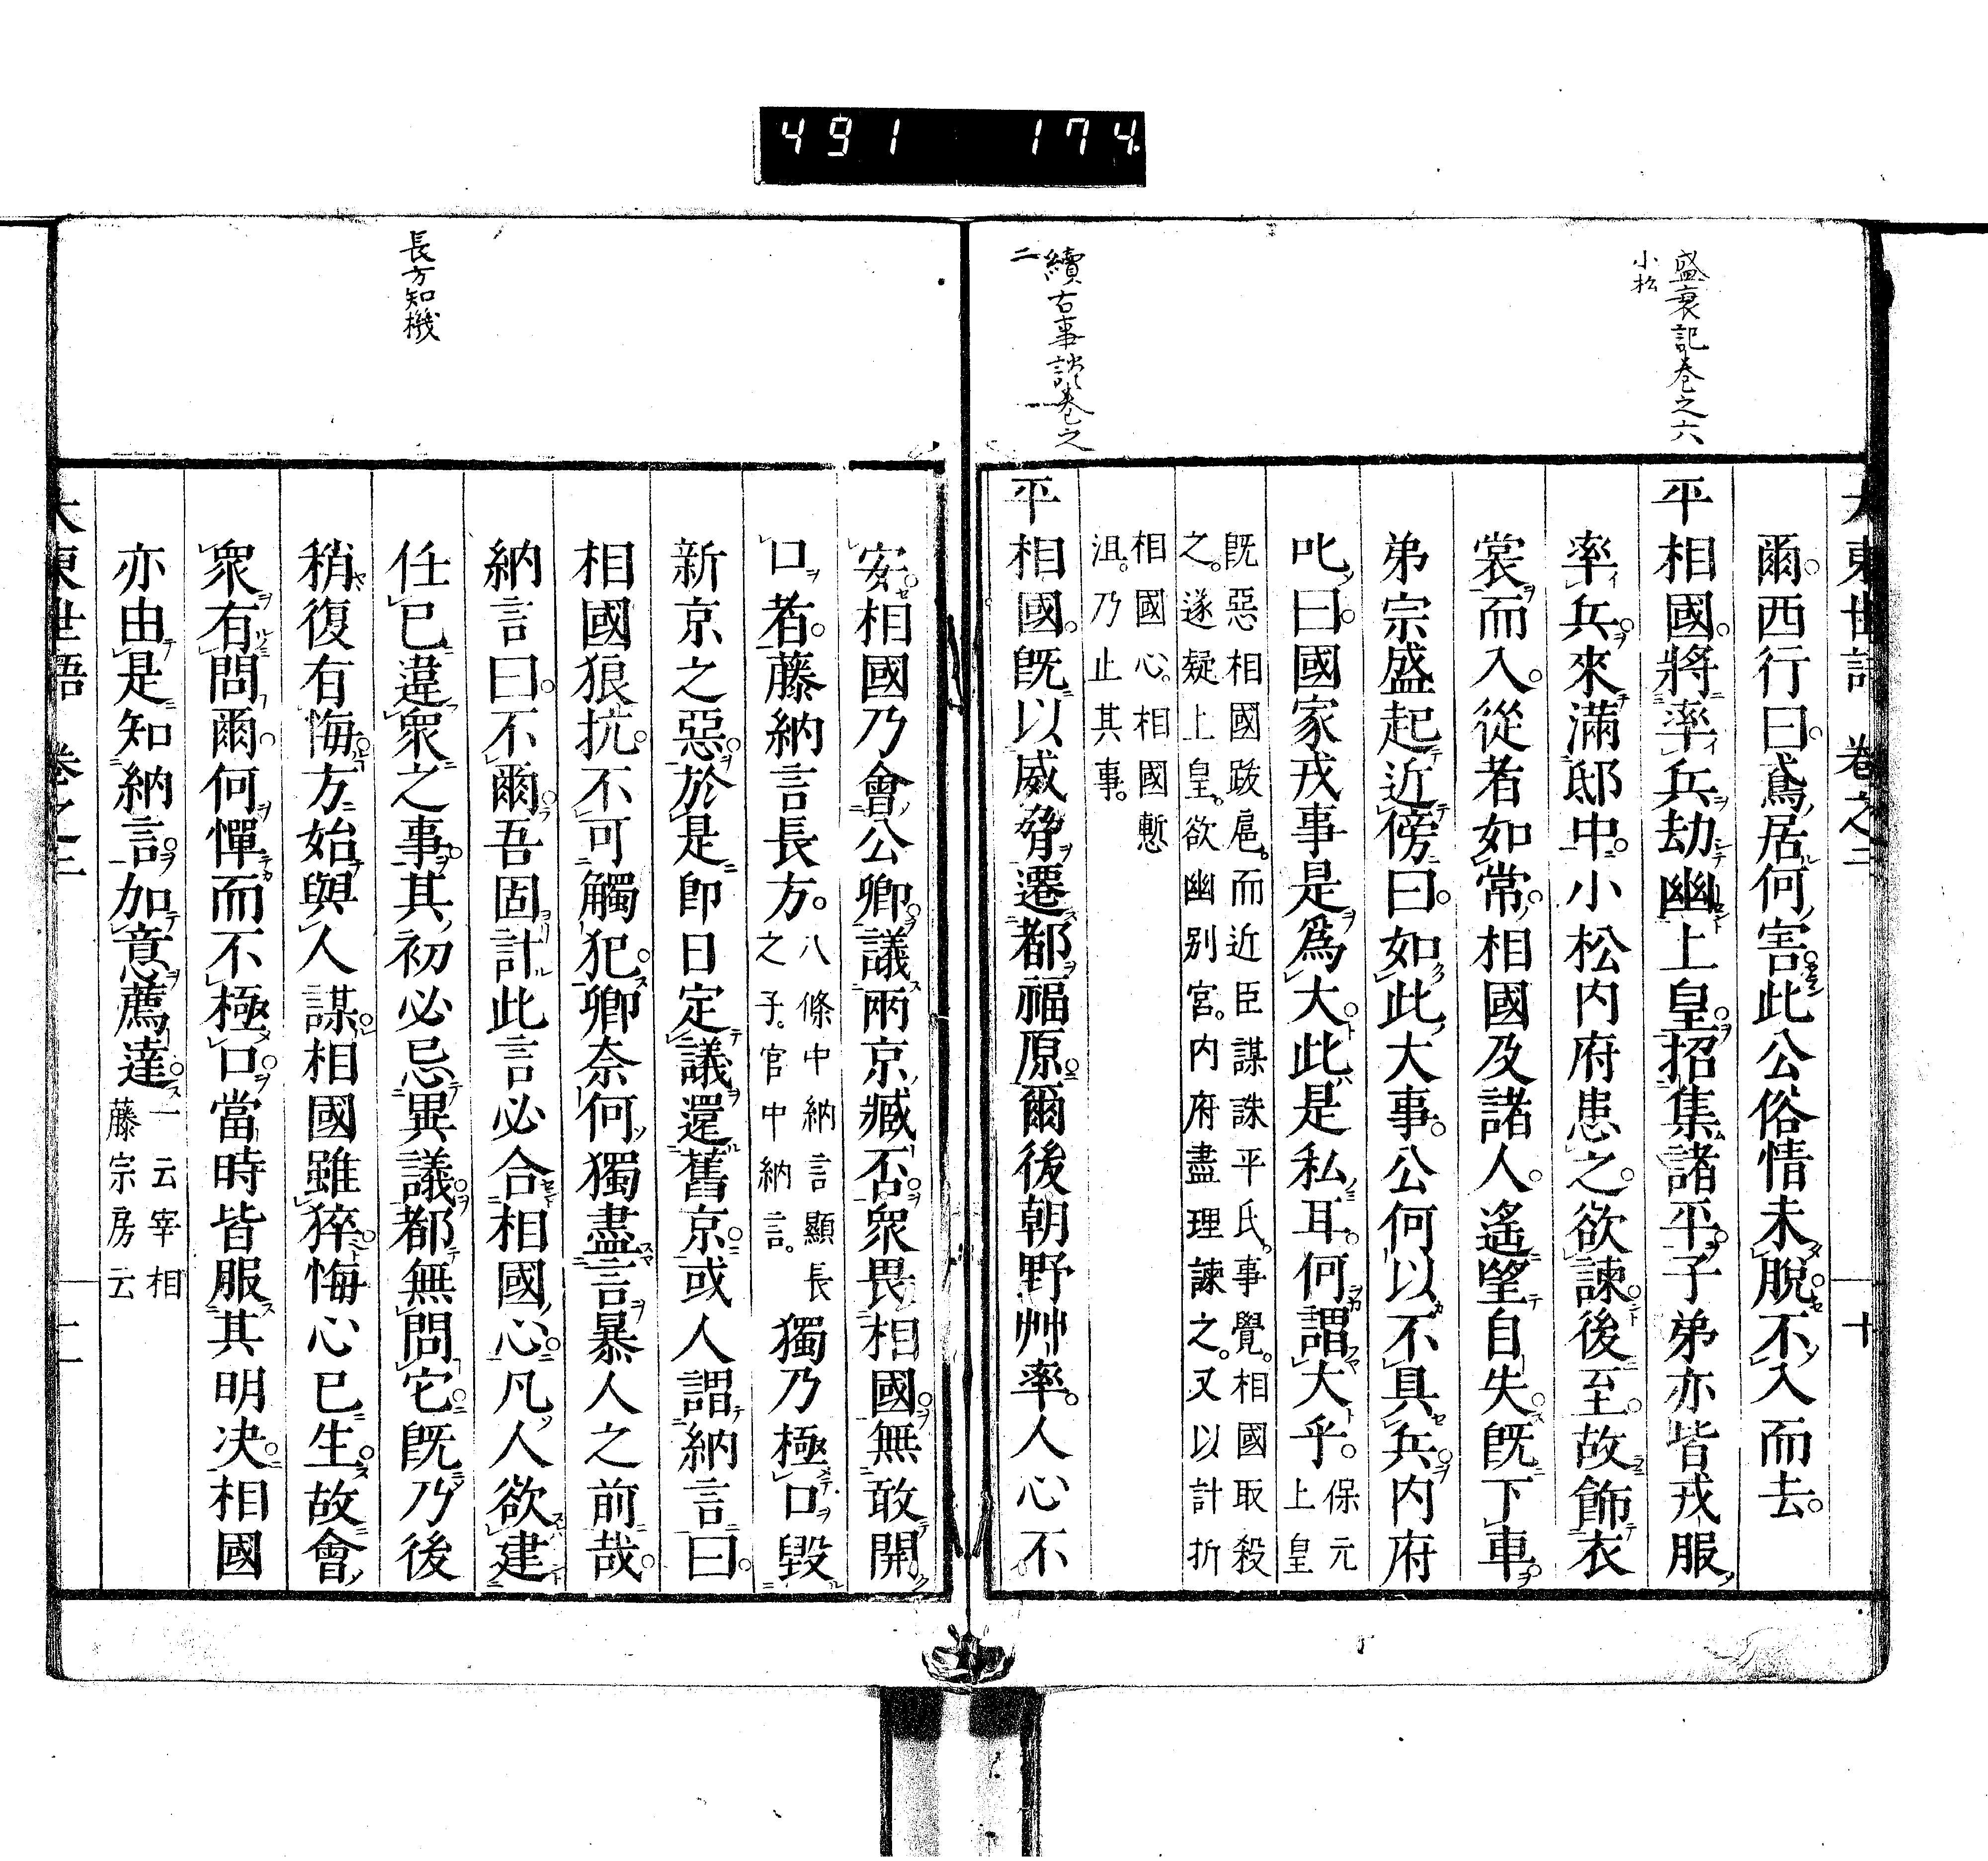 491 174.
盛衰記卷之六
小松
續古事談卷之
二
大東世語 卷之二 十
爾。西行曰。鳶居何害。此公俗情未脫。不入而去。
平相國。將率兵劫幽上皇。招集諸平。子弟亦皆戎服
率兵來滿邸中。小松内府患之。欲諫後至。故飾衣
裳而入。從者如常。相國及諸人。遙望自失。既下車。
弟宗盛起近傍曰。如此大事。公何以不具兵。内府
叱曰。國家戎事是爲大。此是私耳。何謂大乎。保元
上皇
既惡相國跋扈。而近臣謀誅平氏。事覺。相國取殺
之。遂疑上皇。欲幽别宮。内府盡理諫之。又以計折
相國心。相國慙
沮。乃止其事。
平相國。既以威脅遷都福原。爾後朝野艸率。人心不
長方知機
安。相國乃會公卿。議兩京臧否。衆畏相國。無敢開
口者。藤納言長方。八條中納言顯長
之子。官中納言。獨乃極口毀
新京之惡。於是即日定議還舊京。或人謂納言曰。
相國狼抗。不可觸犯。卿奈何獨盡言暴人之前哉。
納言曰。不爾。吾固計此言必合相國心。凡人欲建
任已違衆之事。其初必忌異議。都無問它。既乃後
稍復有悔。方始與人謀。相國雖猝悔心已生。故會
衆有問。爾何憚而不極口。當時皆服其明决。相國
亦由是知納言。加意薦達。一云宰相
藤宗房云
大東世語 卷之二 十一